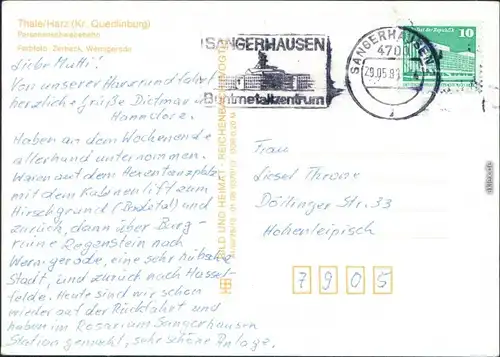 Thale/Harz (Kr. Quedlinburg)
Personenschwebebahn
Farbfoto: Zerneck, Wernigerode
Liebe Mutti!
Von unserer Harzrundfahrt
herzliche Grüße Dietmar u.
Hannelore.
Haben am Wochenende
allerhand unternommen.
Waren auf dem Hexentanzplatz
mit dem Kabinenlift zum
Hirschgrund (Bodetal) und
zurück, dann über Burg-
ruine Regenstein nach
Wernigerode, eine sehr hübsche
Stadt, und zurück nach Hassel-
felde. Heute sind wir schon
wieder auf der Rückfahrt und
haben im Rosarium Sangerhausen
Station gemacht, sehr schöne Anlage.
BILD UND HEIMAT REICHENBACH (VOGTL)
SANGERHAUSEN
Buntmetallzentrum
SANGERHAUSEN
4700
29.05.8
10
Frau
Liesel Throne
Döllinger Str. 33
Hohenleipisch
7905